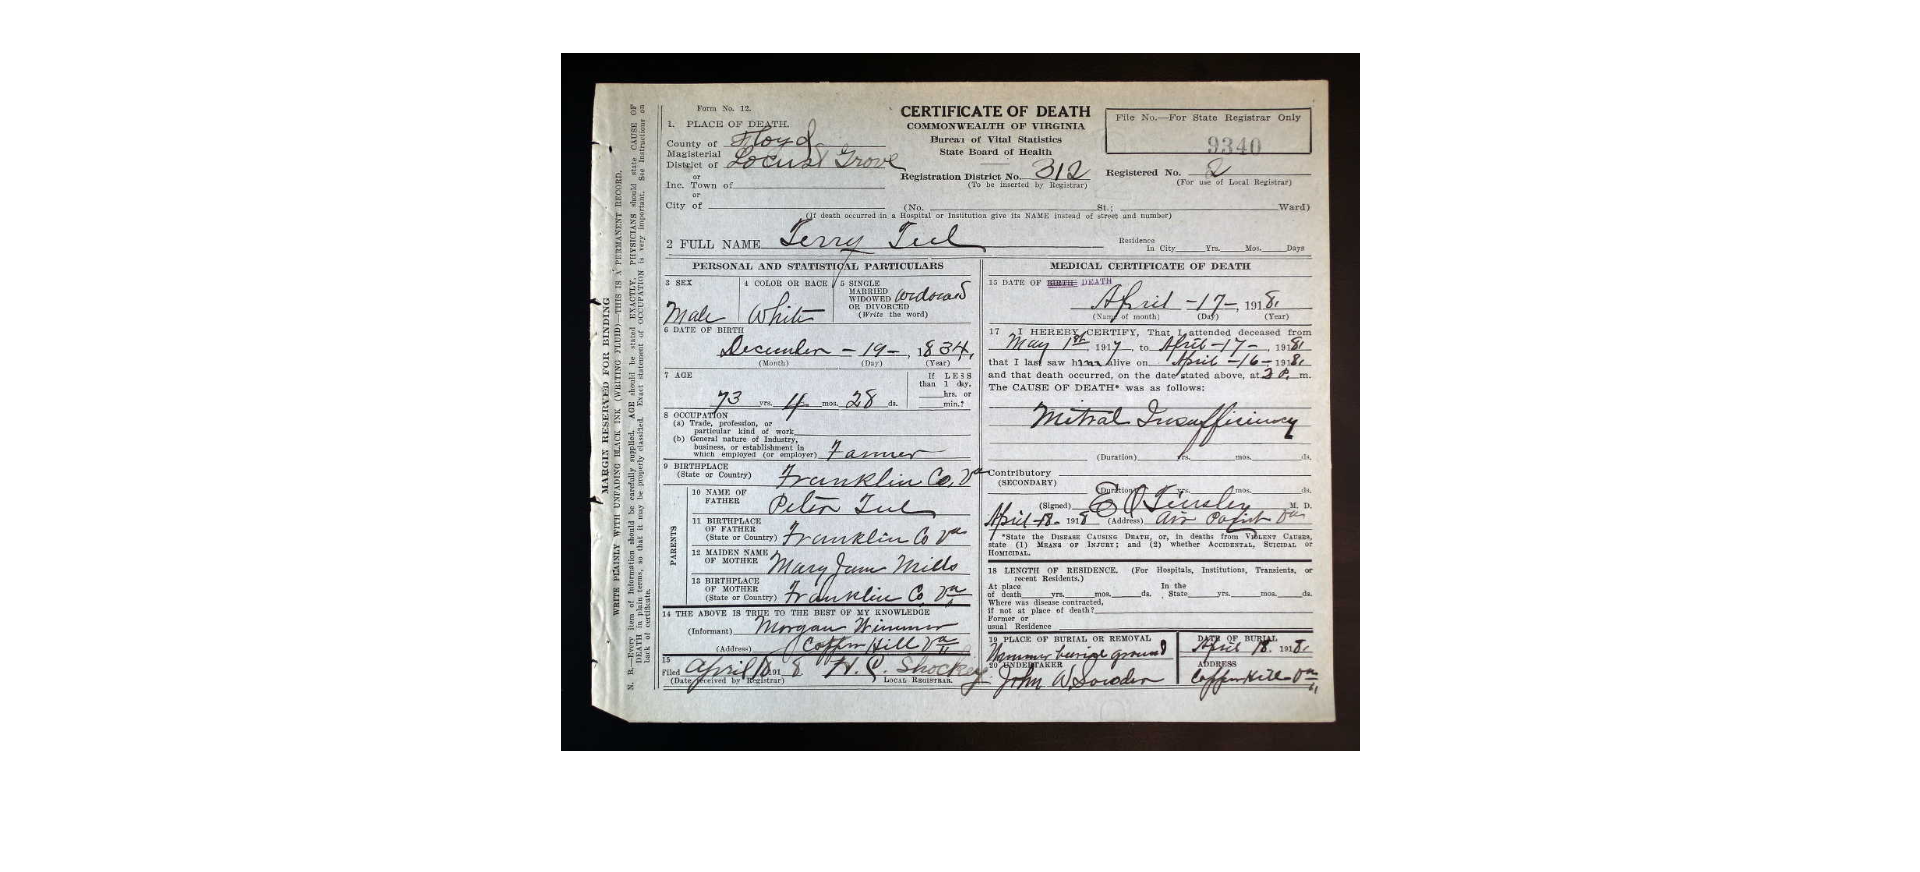 Form No. 12.
CERTIFICATE OF DEATH
COMMONWEALTH OF VIRGINIA
Bureau of Vital Statistics
State Board of Health
File No.—For State Registrar Only
9340
1. PLACE OF DEATH.
County of Floyd
Magisterial
District of Locust Grove
or
Inc. Town of
or
City of
Registration District No. 312
(To be inserted by Registrar)
Registered No. 2
(For use of Local Registrar)
(No. St.; Ward)
(If death occurred in a Hospital or Institution give its NAME instead of street and number)
2 FULL NAME Terry Teel
Residence
In City Yrs. Mos. Days
PERSONAL AND STATISTICAL PARTICULARS
3 SEX
Male
4 COLOR OR RACE
White
5 SINGLE
MARRIED
WIDOWED
OR DIVORCED
(Write the word)
widowed
6 DATE OF BIRTH
December - 19 - , 1834,
(Month) (Day) (Year)
7 AGE
73 yrs. 4 mos. 28 ds.
If LESS
than 1 day,
hrs. or
min.?
8 OCCUPATION
(a) Trade, profession, or
particular kind of work
(b) General nature of Industry,
business, or establishment in
which employed (or employer) Farmer
9 BIRTHPLACE
(State or Country) Franklin Co, Va
PARENTS
10 NAME OF
FATHER Peter Teel
11 BIRTHPLACE
OF FATHER
(State or Country) Franklin Co Va
12 MAIDEN NAME
OF MOTHER Mary Jane Mills
13 BIRTHPLACE
OF MOTHER
(State or Country) Franklin Co, Va
14 THE ABOVE IS TRUE TO THE BEST OF MY KNOWLEDGE
(Informant) Morgan Wimmer
(Address) Copper Hill Va
15
Filed April 18 191 8 Shockey
(Date received by Registrar) LOCAL REGISTRAR.
MEDICAL CERTIFICATE OF DEATH
15 DATE OF BIRTH DEATH
April -17-, 1918.
(Name of month) (Day) (Year)
17 I HEREBY CERTIFY, That I attended deceased from
May 1st 1917, to April -17-, 1918,
that I last saw him alive on April -16-, 1918,
and that death occurred, on the date stated above, at 3 P. m.
The CAUSE OF DEATH* was as follows:
Mitral Insufficiency
(Duration) yrs. mos. ds.
Contributory
(SECONDARY)
(Duration) yrs. mos. ds.
(Signed) Tinsley M. D.
April -18- 1918 (Address) Air Point Va
*State the DISEASE CAUSING DEATH, or, in deaths from VIOLENT CAUSES,
state (1) MEANS OF INJURY; and (2) whether ACCIDENTAL, SUICIDAL or
HOMICIDAL.
18 LENGTH OF RESIDENCE. (For Hospitals, Institutions, Transients, or
recent Residents.)
At place In the
of death yrs. mos. ds. State yrs. mos. ds.
Where was disease contracted,
if not at place of death?
Former or
usual Residence
19 PLACE OF BURIAL OR REMOVAL
Wimmer burial ground
DATE OF BURIAL
April 18. 1918.
20 UNDERTAKER
John W Sowder
ADDRESS
Copper Hill - Va
MARGIN RESERVED FOR BINDING
WRITE PLAINLY WITH UNFADING BLACK INK (WRITING FLUID)—THIS IS A PERMANENT RECORD.
N. B.—Every item of Information should be carefully supplied. AGE should be stated EXACTLY. PHYSICIANS should state CAUSE OF
DEATH in plain terms, so that it may be properly classified. Exact statement of OCCUPATION is very important. See Instructions on
back of certificate.